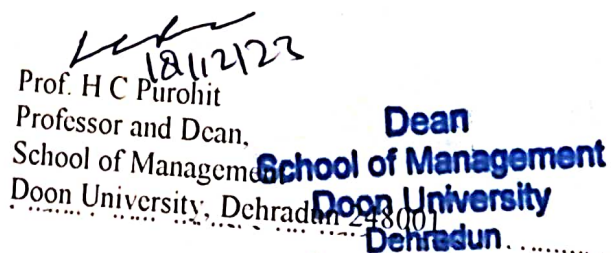 18/12/23
Prof. H C Purohit
Professor and Dean,
School of Management
Doon University, Dehradun 248001
Dean
School of Management
Doon University
Dehradun